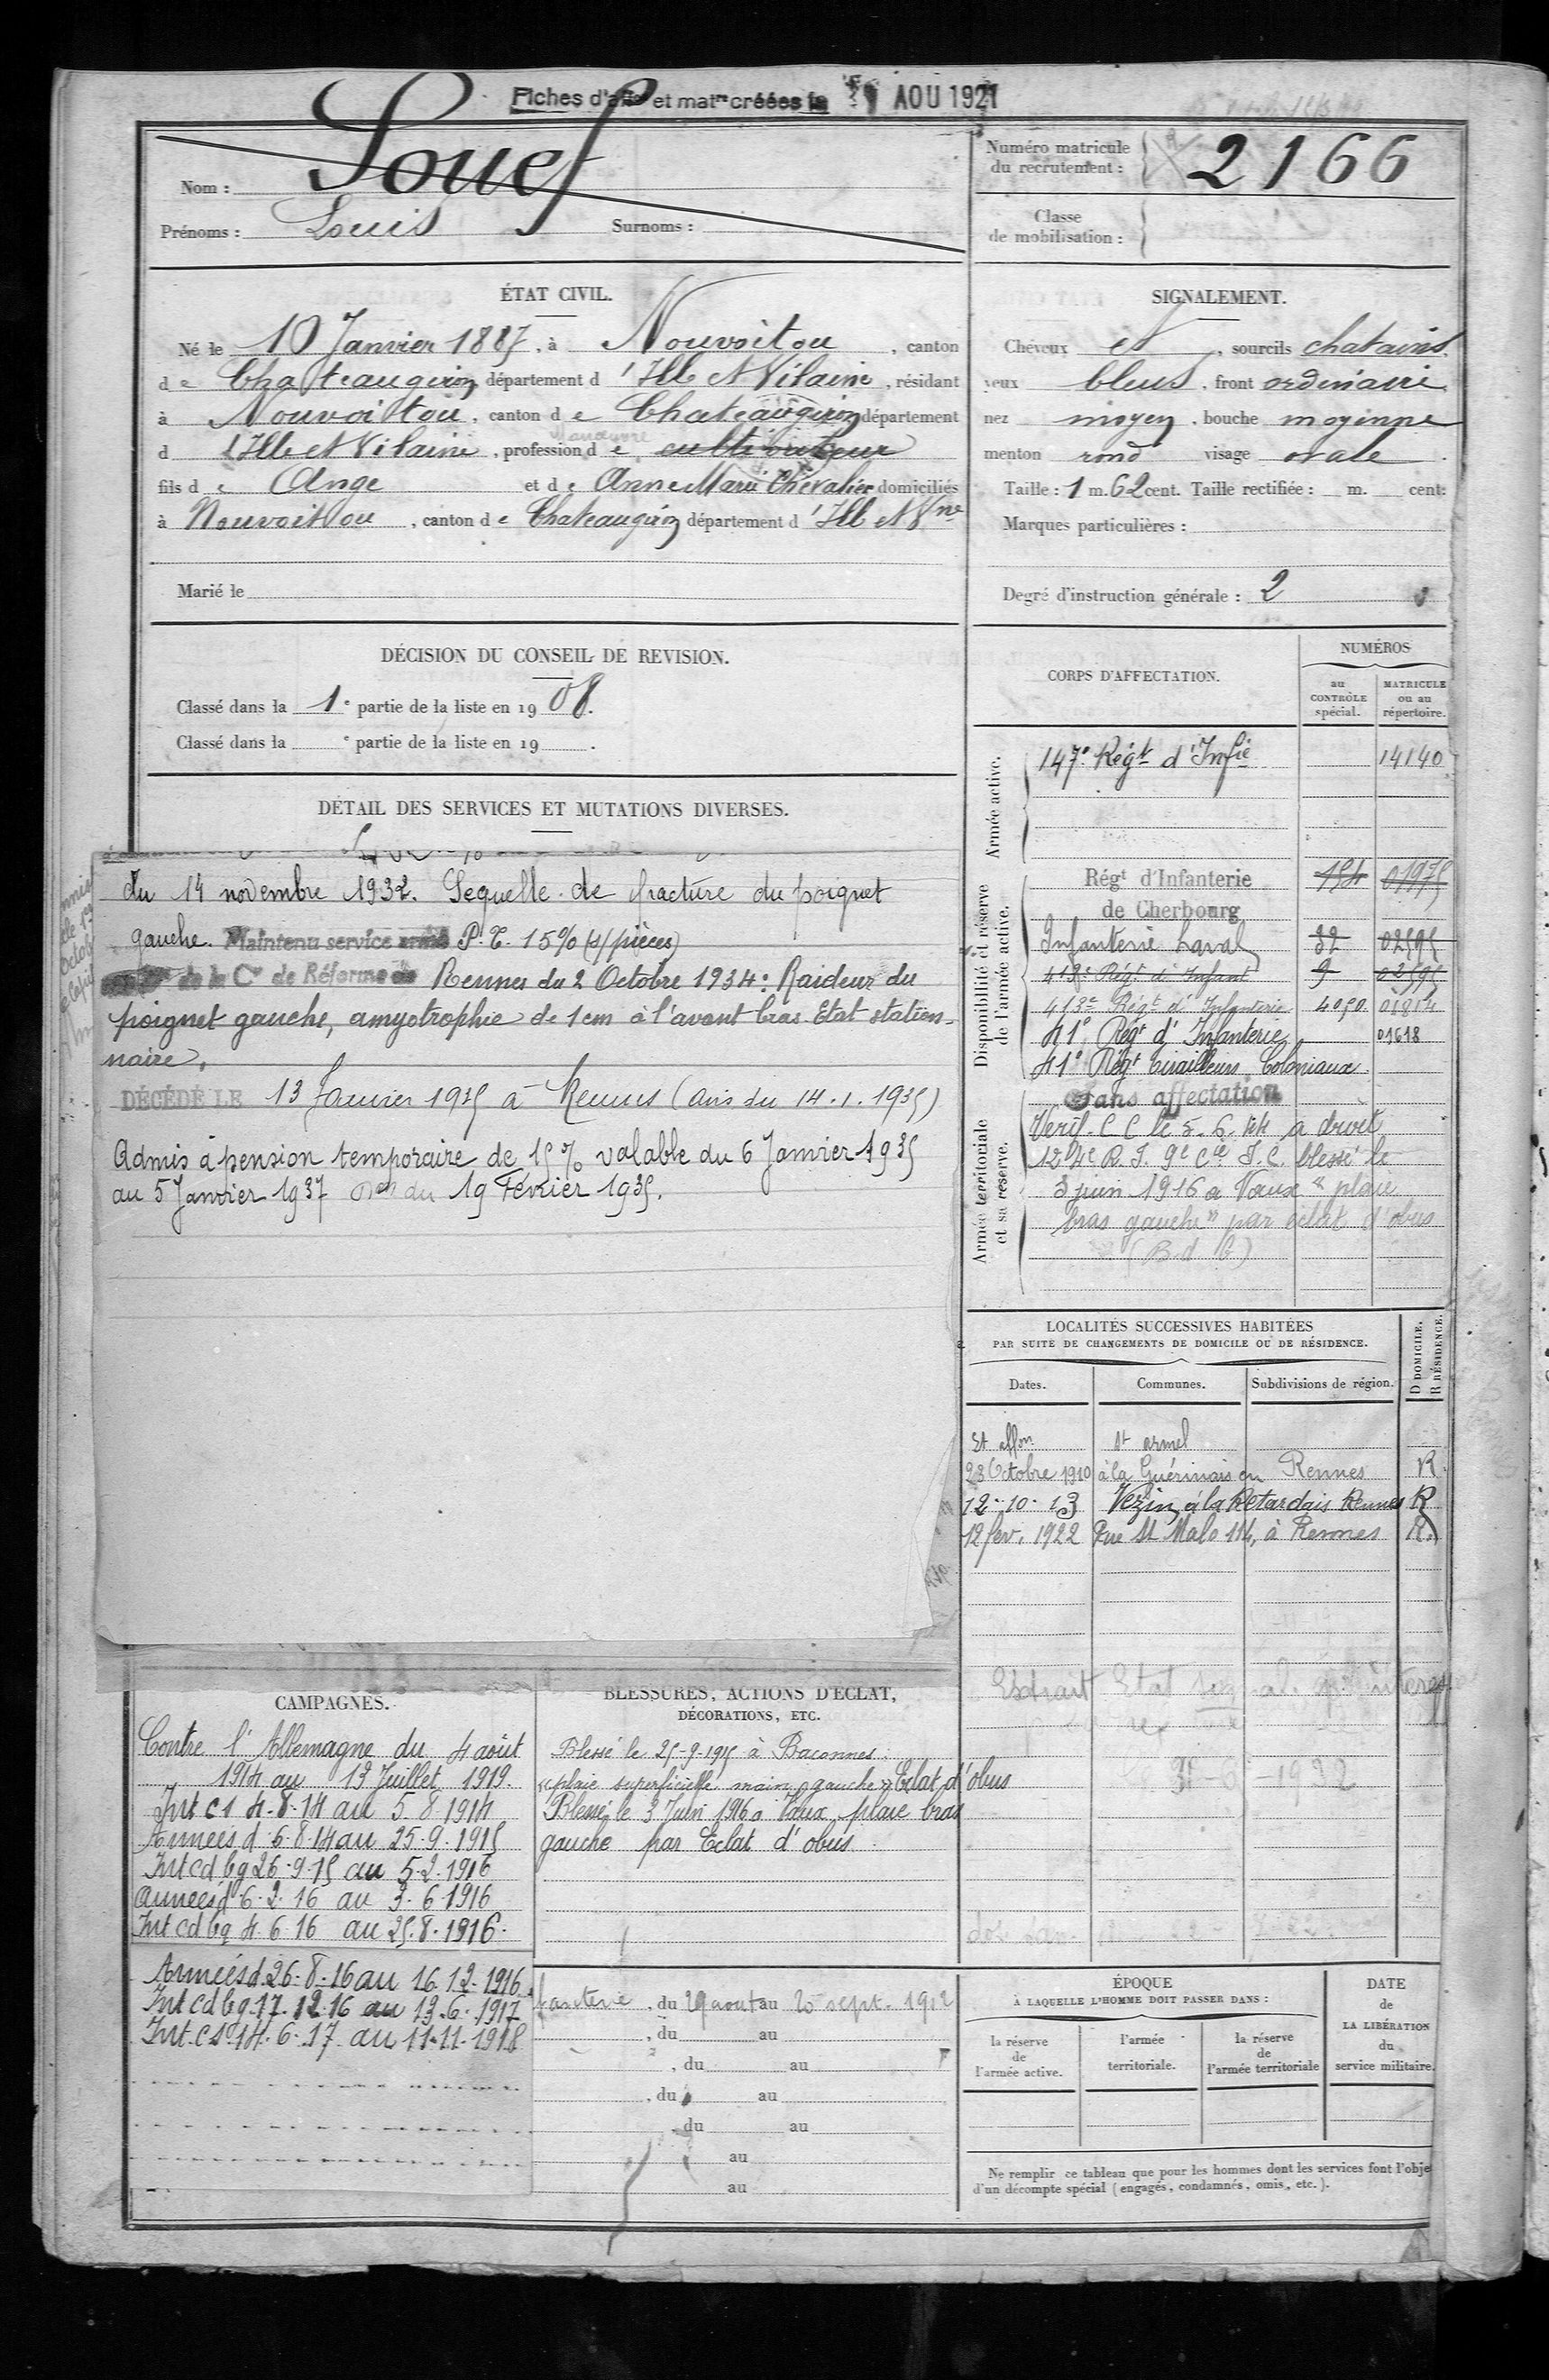 Fiches d'affon et matre créées le AOU 1921
Nom : Louef
Prénoms : Louis Surnoms :
Numéro matricule du recrutement : 2166
Classe de mobilisation :
ÉTAT CIVIL.
Né le 10 Janvier 1887, à Nouvoitou, canton
de Chateaugiron département d'Ille et Vilaine, résidant
à Nouvoitou, canton de Chateaugiron département
d'Ille et Vilaine, profession de cultivateur
Manœuvre
fils de Ange et de Anne Marie Chevalier domiciliés
à Nouvoitou, canton de Chateaugiron département d'Ill et Vne
Marié le
SIGNALEMENT.
Cheveux et, sourcils chatains
yeux bleus, front ordinaire
nez moyen, bouche moyenne
menton rond visage ovale.
Taille : 1 m. 62 cent. Taille rectifiée : m. cent.
Marques particulières :
Degré d'instruction générale : 2
DÉCISION DU CONSEIL DE REVISION.
Classé dans la 1e partie de la liste en 1908.
Classé dans la e partie de la liste en 19 .
DÉTAIL DES SERVICES ET MUTATIONS DIVERSES.
du 14 novembre 1932. Sequelle de fracture du poignet
gauche. Maintenu service armé P.T. 15% (s/ pièces)
de la Con de Réforme de Rennes du 2 Octobre 1934 : Raideur du
poignet gauche, amyotrophie de 1cm à l'avant bras. Etat station-
naire.
DÉCÉDÉ LE 13 Janvier 1935 à Rennes (avis du 14.1.1935)
Admis à pension temporaire de 15% valable du 6 Janvier 1935
au 5 Janvier 1937 Don du 19 Fevrier 1935.
CORPS D'AFFECTATION.
NUMÉROS
au CONTRÔLE spécial.
MATRICULE ou au répertoire.
Armée active.
147e Régt d'Infie 14140
Disponibilité et réserve de l'armée active.
Régt d'Infanterie 154 01975
de Cherbourg
Infanterie Laval 32 02595
413e Régt d'Infant 9 02595
413e Régt d'Infanterie 4050 01814
41e Régt d'Infanterie 01618
41e Régt tirailleurs Coloniaux
Armée territoriale et sa réserve.
Sans affectation
Verif. C C le 5.6.44 a droit
124e R.I. 9e Cie S.C. blessé le
3 juin 1916 a Vaux "plaie
bras gauche" par éclat d'obus
(B.d G)
LOCALITÉS SUCCESSIVES HABITÉES
PAR SUITE DE CHANGEMENTS DE DOMICILE OU DE RÉSIDENCE.
Dates. Communes. Subdivisions de région. D DOMICILE. R RÉSIDENCE.
Et affon St armel
23 Octobre 1910 à la Guérinais en Rennes R
12-10-13 Vezin à la Retardais Rennes R
12 fev. 1922 Rue St Malo 114, à Rennes R.
Extrait Etat
-6-1932
CAMPAGNES.
Contre l'Allemagne du 4 août
1914 au 13 Juillet 1919.
Int c s 4-8-14 au 5.8.1914
Armées d 6.8.14 au 25.9.1915
Int c d bg 26.9.15 au 5.2.1916
Armées d 6.2.16 au 3.6.1916
Int c d bg 4.6.16 au 25.8.1916.
Armées d. 26.8.16 au 16.12.1916
Int c d bg 17.12.16 au 13.6.1917
Int. c s. 14.6.17 au 11.11.1918
BLESSURES, ACTIONS D'ÉCLAT,
DÉCORATIONS, ETC.
Blessé le 25-9-1915 à Baconnes.
"plaie superficielle main gauche" Eclat d'obus
Blessé le 3 Juin 1916 a Vaux plaie bras
gauche par Eclat d'obus.
fanterie, du 29 aout au 20 sept. 1912
, du au
, du au
, du au
du au
au
au
ÉPOQUE
À LAQUELLE L'HOMME DOIT PASSER DANS :
la réserve de l'armée active.
l'armée territoriale.
la réserve de l'armée territoriale
DATE de LA LIBÉRATION du service militaire.
Ne remplir ce tableau que pour les hommes dont les services font l'obje
d'un décompte spécial (engagés, condamnés, omis, etc.).